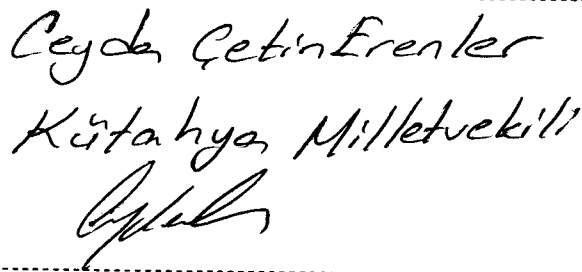 Ceyda ÇetinErenler
Kütahya Milletvekili